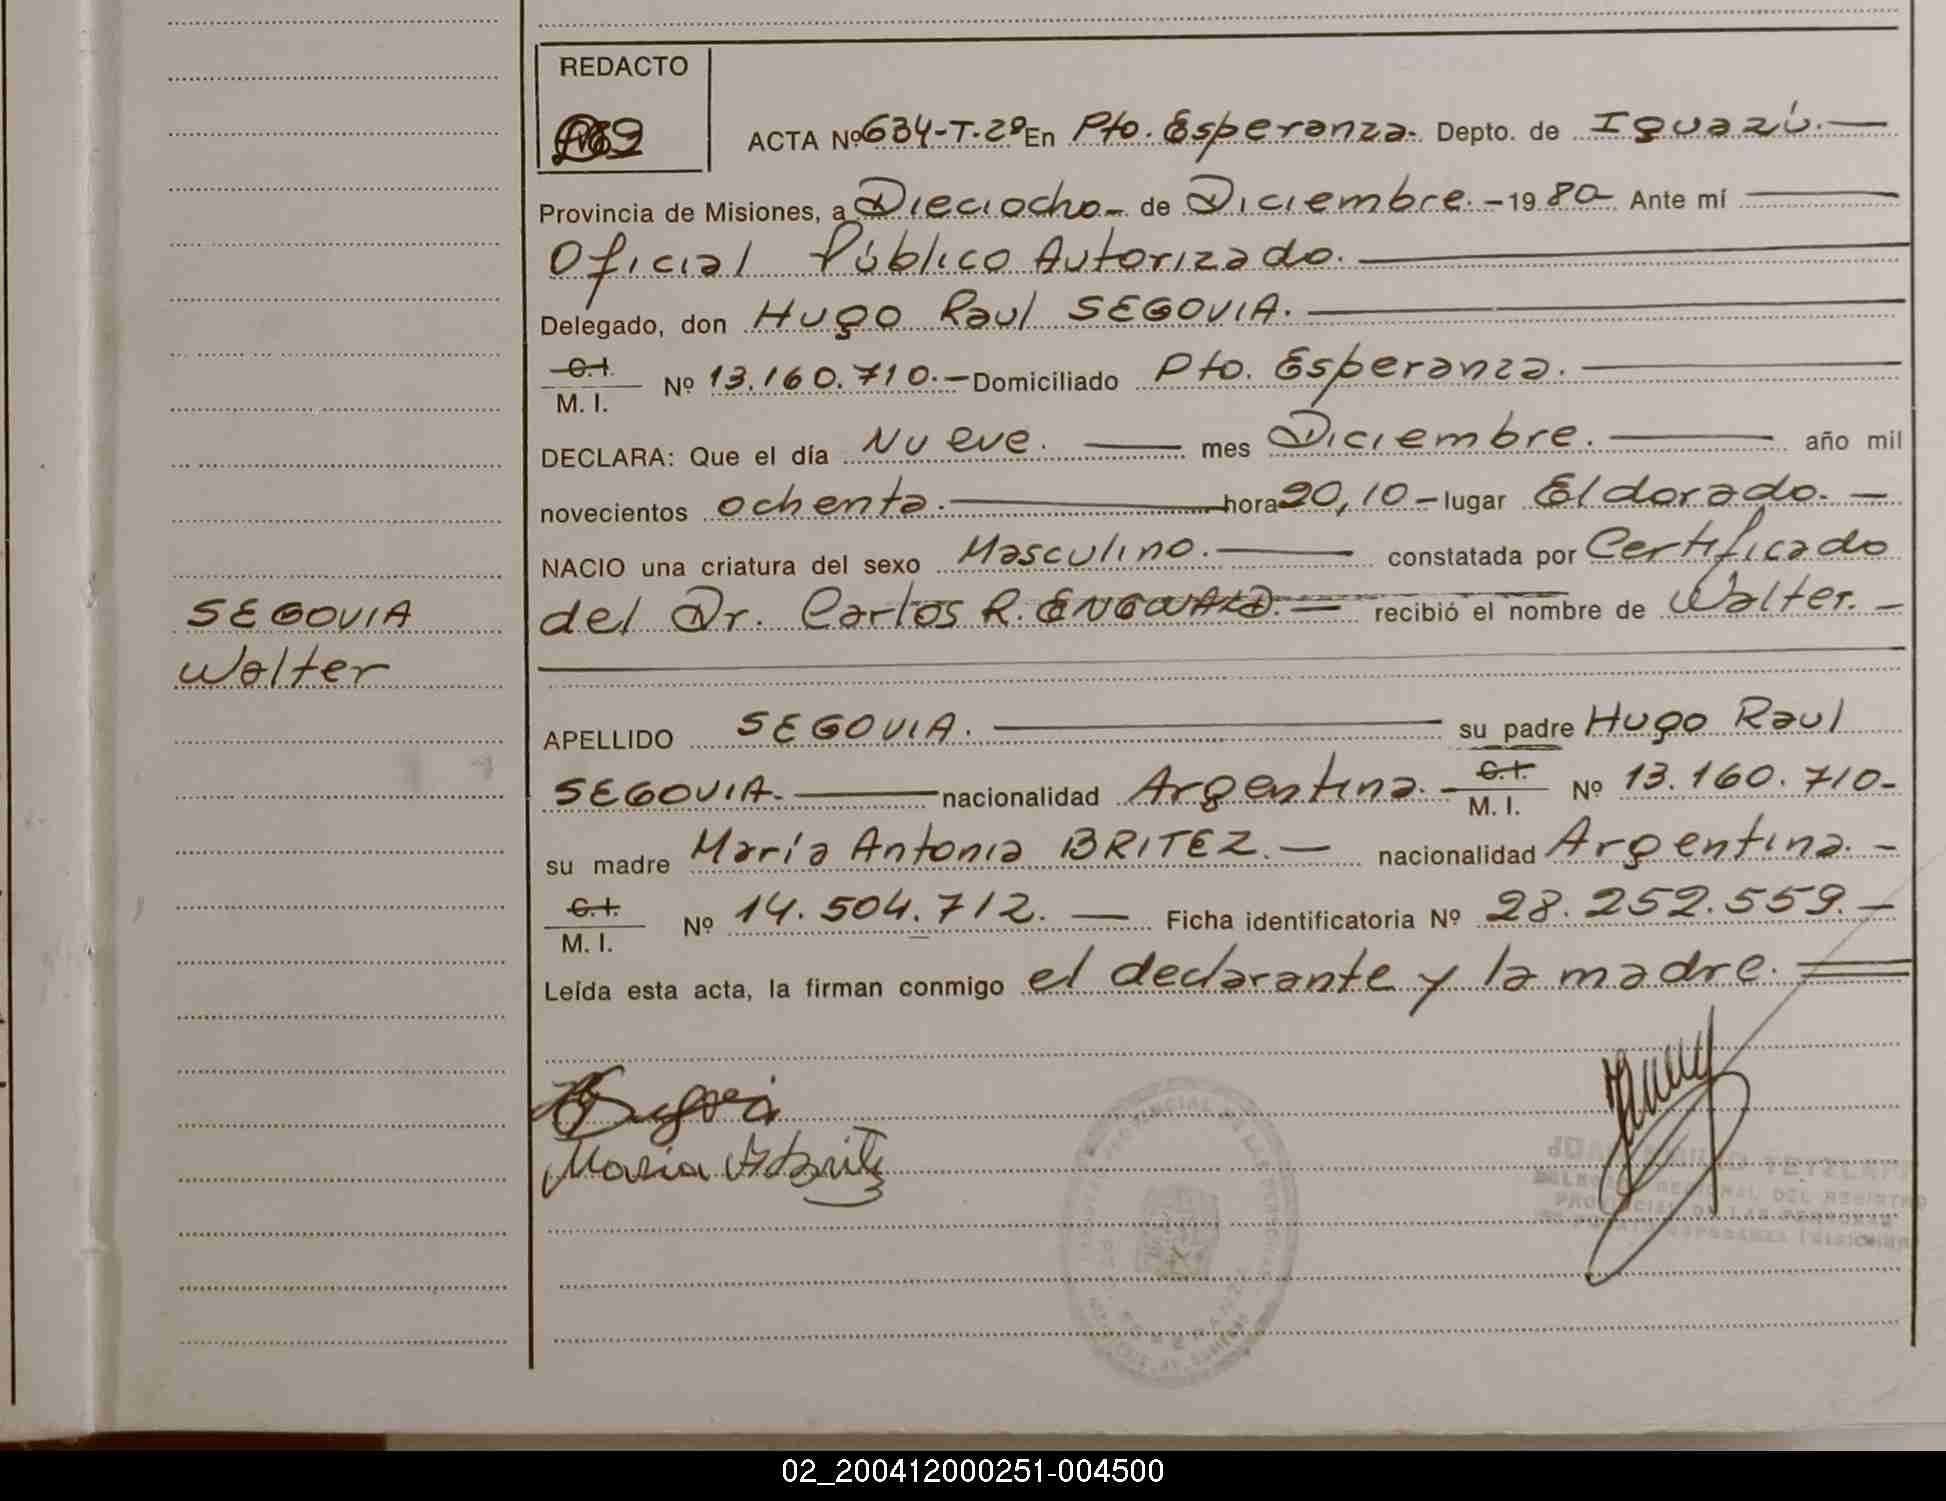 REDACTO
ACTA Nº 634-T-2º En Pto. Esperanza.- Depto. de Iguazú.—
Provincia de Misiones, a Dieciocho.- de Diciembre.- 1980- Ante mí
Oficial Público Autorizado.
Delegado, don Hugo Raul SEGOVIA.
C.I.
M. I. Nº 13.160.710.- Domiciliado Pto. Esperanza.
DECLARA: Que el día Nueve. mes Diciembre. año mil
novecientos ochenta. hora 20,10- lugar Eldorado.-
NACIO una criatura del sexo Masculino. constatada por Certificado
del Dr. Carlos R. recibió el nombre de Walter.-
SEGOVIA
Walter
APELLIDO SEGOVIA. su padre Hugo Raul
SEGOVIA.- nacionalidad Argentina.- C.I.
M. I. Nº 13.160.710-
su madre María Antonia BRITEZ.- nacionalidad Argentina.-
C.I.
M. I. Nº 14.504.712.- Ficha identificatoria Nº 28.252.559.-
Leída esta acta, la firman conmigo el declarante y la madre.
Maria
02_200412000251-004500